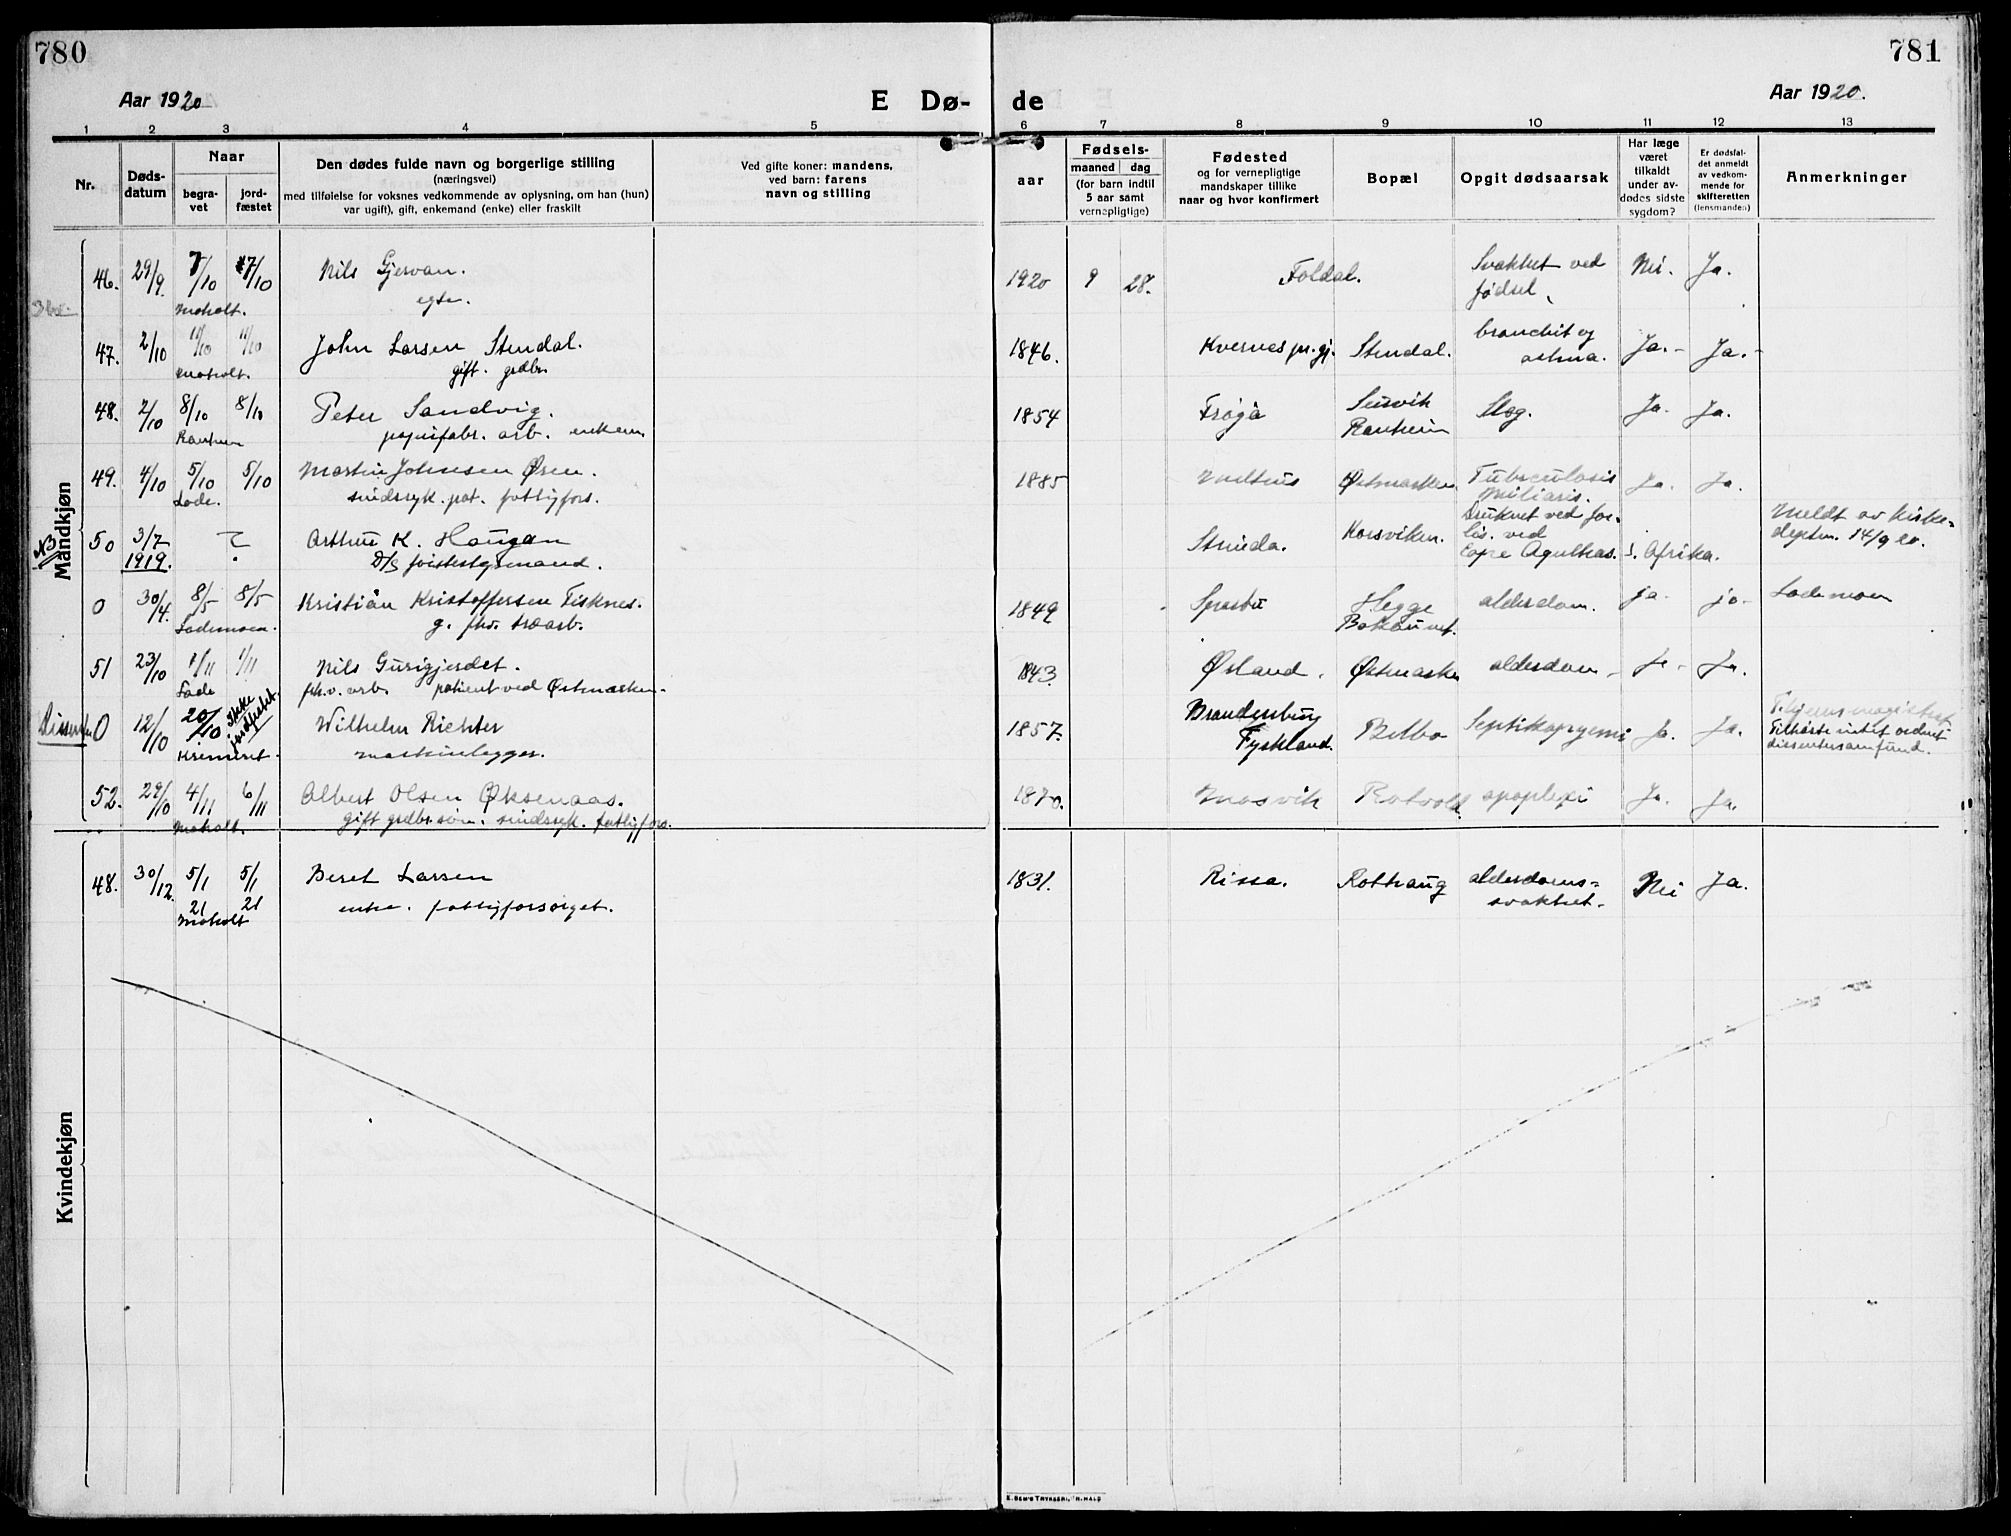 780
781
Aar 1920
E Dø-
de
Aar 1920.
1 2 3 4 5 6 7 8 9 10 11 12 13
Nr.
Døds-
datum
Naar
begra-
vet
jord-
fæstet
Den dødes fulde navn og borgerlige stilling
(næringsvei)
med tilføielse for voksnes vedkommende av oplysning, om han (hun)
var ugift), gift, enkemand (enke) eller fraskilt
Ved gifte koner: mandens,
ved barn: farens
navn og stilling
aar
Fødsels-
maaned dag
(for barn indtil
5 aar samt
vernepligtige)
Fødested
og for vernepligtige
mandskaper tillike
naar og hvor konfirmert
Bopæl
Opgit dødsaarsak
Har læge
været
tilkaldt
under av-
dødes sidste
sygdom?
Er dødsfal-
det anmeldt
av vedkom-
mende for
skifteretten
(lensmanden)
Anmerkninger
Mandkjøn
46. 29/9. 7/10 7/10 Nils Gjervan. 1920 9 28. Foldal. Svakhet ved Nei. Ja.
Moholt. egte. fødsel
47. 2/10 11/10 11/10 John Larsen Stendal. 1846. Kvernes pr.gj. Stendal. bronchit og Ja. Ja.
Moholt. gift. grdbr. astma.
48. 2/10 8/10 8/10 Peter Sandvig. 1854 Frøya Ranheim Slag. Ja. Ja.
Ranheim papirfabr. arb. enkem.
49. 4/10 5/10 5/10 Martin Johnsen Øren. 1885 Østmarken Tuberculosis Ja. Ja.
Lade. sindssyk. pat. fattigfors. Miliaris.
NB 50 3/7 Arthur K. Haugan Strinda. Korsviken. Druknet ved for-
lis. ved Meldt av Kirke-
1919. D/S Cape Agulhas. S. Afrika. deptm. 14/9 20.
0 30/4. 8/5 8/5 Kristian Kristoffersen Fisknes. 1849 Sparbu Hegge alderdom. ja. ja. Lademoen
Lademoen. g. fhv. træarb. Bakaunet.
51 23/10 1/11 1/11 Nils Gurigjerdet. 1843. Ørland. Østmarken alderdom Ja. Ja.
Lade fh.v. arb. patient ved Østmarken.
Dissenter 0 12/10 20/10 Ikke jordfæstet. Wilhelm Richter 1857. Brandenburg Belbo Septikopyemi Ja. Ja.
Kremeret. maskinlegger. Tyskland. Tilhørte intet ordnet
dissentersamfund.
52. 29/10 4/11 6/11 Albert Olsen Øksenaas. 1870. Mosvik Rotvold apoplexi Ja. Ja.
Moholt. gift grdbr.søn. sindssyk. fattigfors.
Kvindekjøn
48. 30/12. 5/1 21 5/1 21 Beret Larsen 1831. Rissa. Rothaug alderdoms- Nei Ja.
Moholt enke. fattigforsørget. svakhet.
E. SEM'S TRYKKERI, FR.HALD